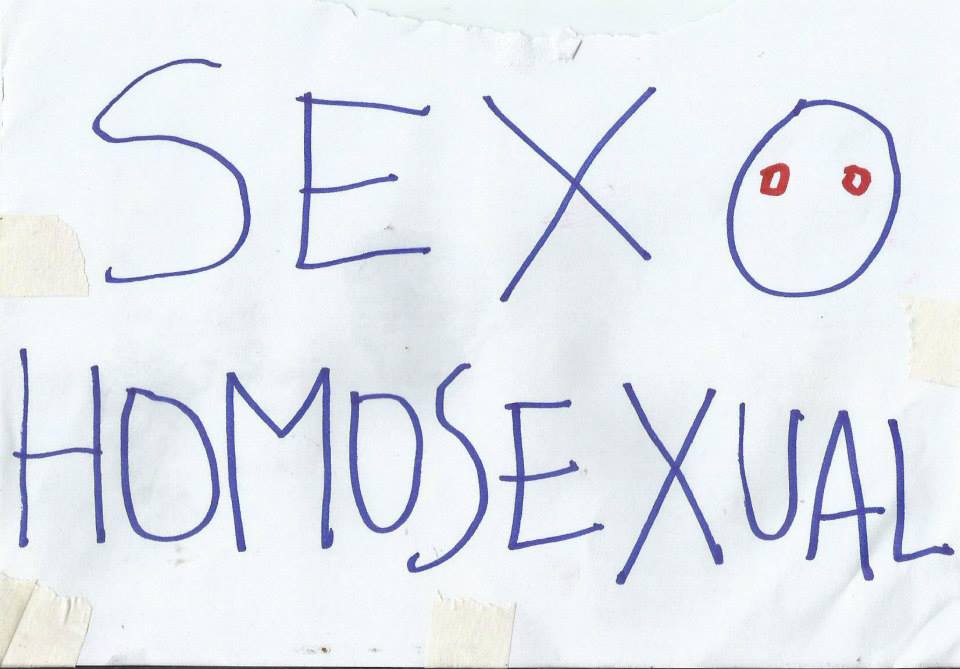 SEXO
HOMOSEXUAL